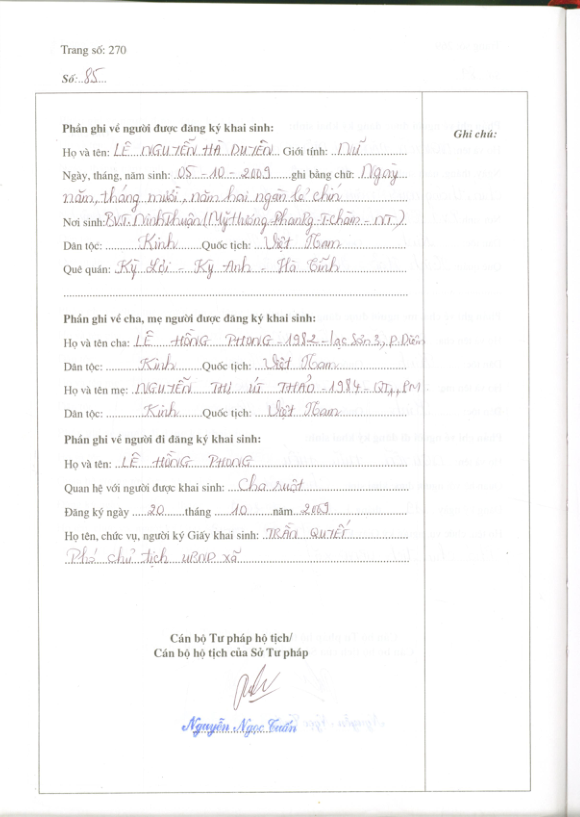 Trang số: 270
Số: 85
Phần ghi về người được đăng ký khai sinh:
Ghi chú:
Họ và tên: LÊ NGUYỄN HÀ DUYÊN Giới tính: Nữ
Ngày, tháng, năm sinh: 05 - 10 - 2009 ghi bằng chữ: Ngày
năm, tháng mười, năm hai ngàn lẻ chín
Nơi sinh: BVT. Ninh Thuận (Mỹ Hương - Phan Rg - T. chàm - NT.)
Dân tộc: Kinh Quốc tịch: Việt Nam
Quê quán: Kỳ Lợi - Kỳ Anh - Hà Tĩnh
Phần ghi về cha, mẹ người được đăng ký khai sinh:
Họ và tên cha: LÊ HỒNG PHONG - 1982 - Lạc Sơn 3, P. Diêm
Dân tộc: Kinh Quốc tịch: Việt Nam
Họ và tên mẹ: NGUYỄN THỊ ÚT THẢO - 1984 - QT1, PM
Dân tộc: Kinh Quốc tịch: Việt Nam
Phần ghi về người đi đăng ký khai sinh:
Họ và tên: LÊ HỒNG PHONG
Quan hệ với người được khai sinh: Cha ruột
Đăng ký ngày 20 tháng 10 năm 2009
Họ tên, chức vụ, người ký Giấy khai sinh: TRẦN QUYẾT
Phó chủ tịch UBND xã
Cán bộ Tư pháp hộ tịch/
Cán bộ hộ tịch của Sở Tư pháp
Nguyễn Ngọc Tuấn